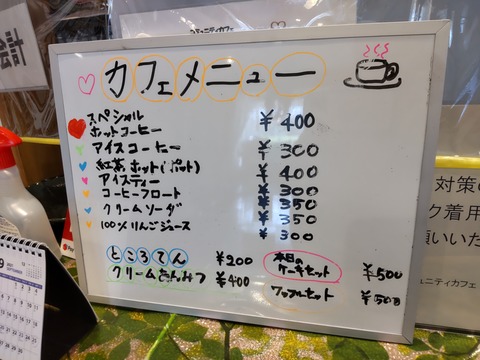 コミュニティカフェ
カフェメニュー
スペシャル
ホットコーヒー ¥400
アイスコーヒー ¥300
紅茶ホット(ポット) ¥400
アイスティー ¥300
コーヒーフロート ¥350
クリームソーダ ¥350
100%りんごジュース ¥300
ところてん ¥200
クリームあんみつ ¥400
本日の
ケーキセット ¥500
ワッフルセット ¥500
対策の
ク着用
願いいた
ュニティカフェ
9